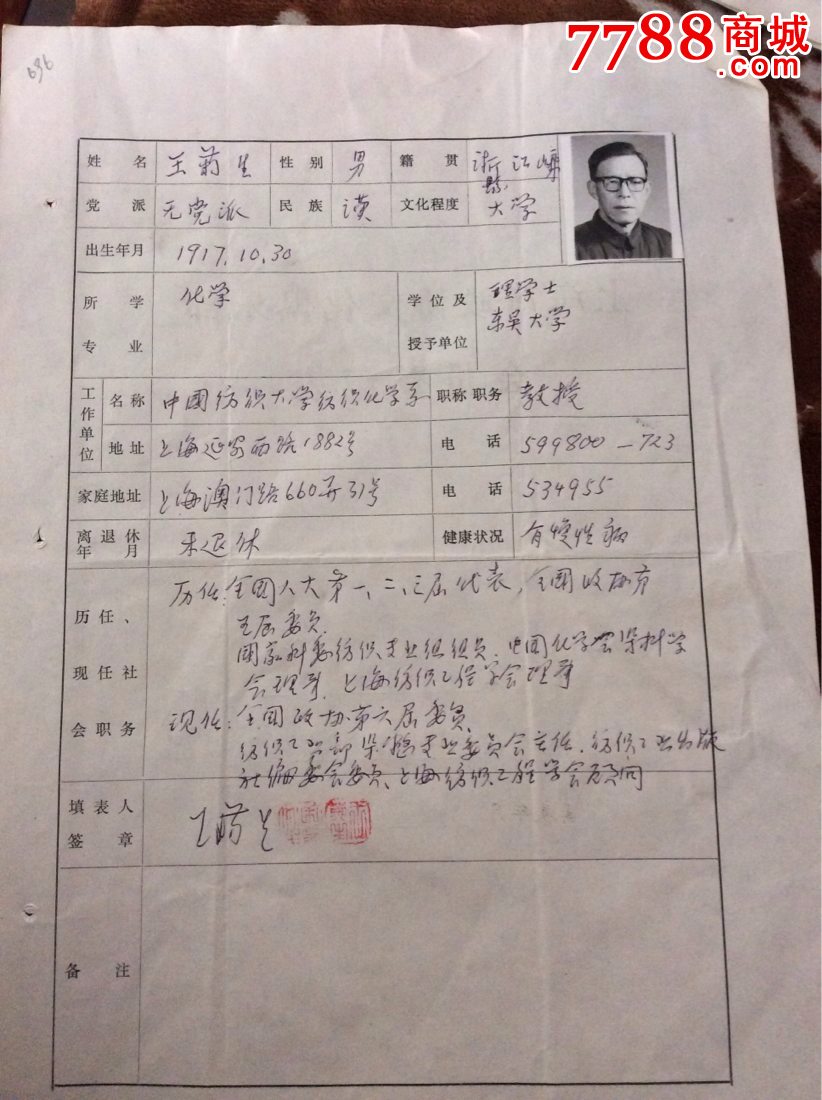 7788商城
.com
636
姓名 王菊生 性别 男 籍贯 浙江
县
党派 无党派 民族 汉 文化程度 大学
出生年月 1917.10.30
所学专业 化学 学位及授予单位 理学士
东吴大学
工作单位 名称 中国纺织大学纺织化学系 职称职务 教授
地址 上海延安西路1882号 电话 599800—723
家庭地址 上海澳门路660弄31号 电话 534955
离退休年月 未退休 健康状况 有慢性病
历任、现任社会职务
历任:全国人大第一、二、三届代表,全国政协第
五届委员,
国家科委纺织专业组组员、中国化学会染料学
会理事、上海纺织工程学会理事
现任:全国政协第六届委员,
纺织工业部染整专业委员会主任、纺织工业出版
社编委会委员、上海纺织工程学会顾问
填表人签章 王菊生
备注